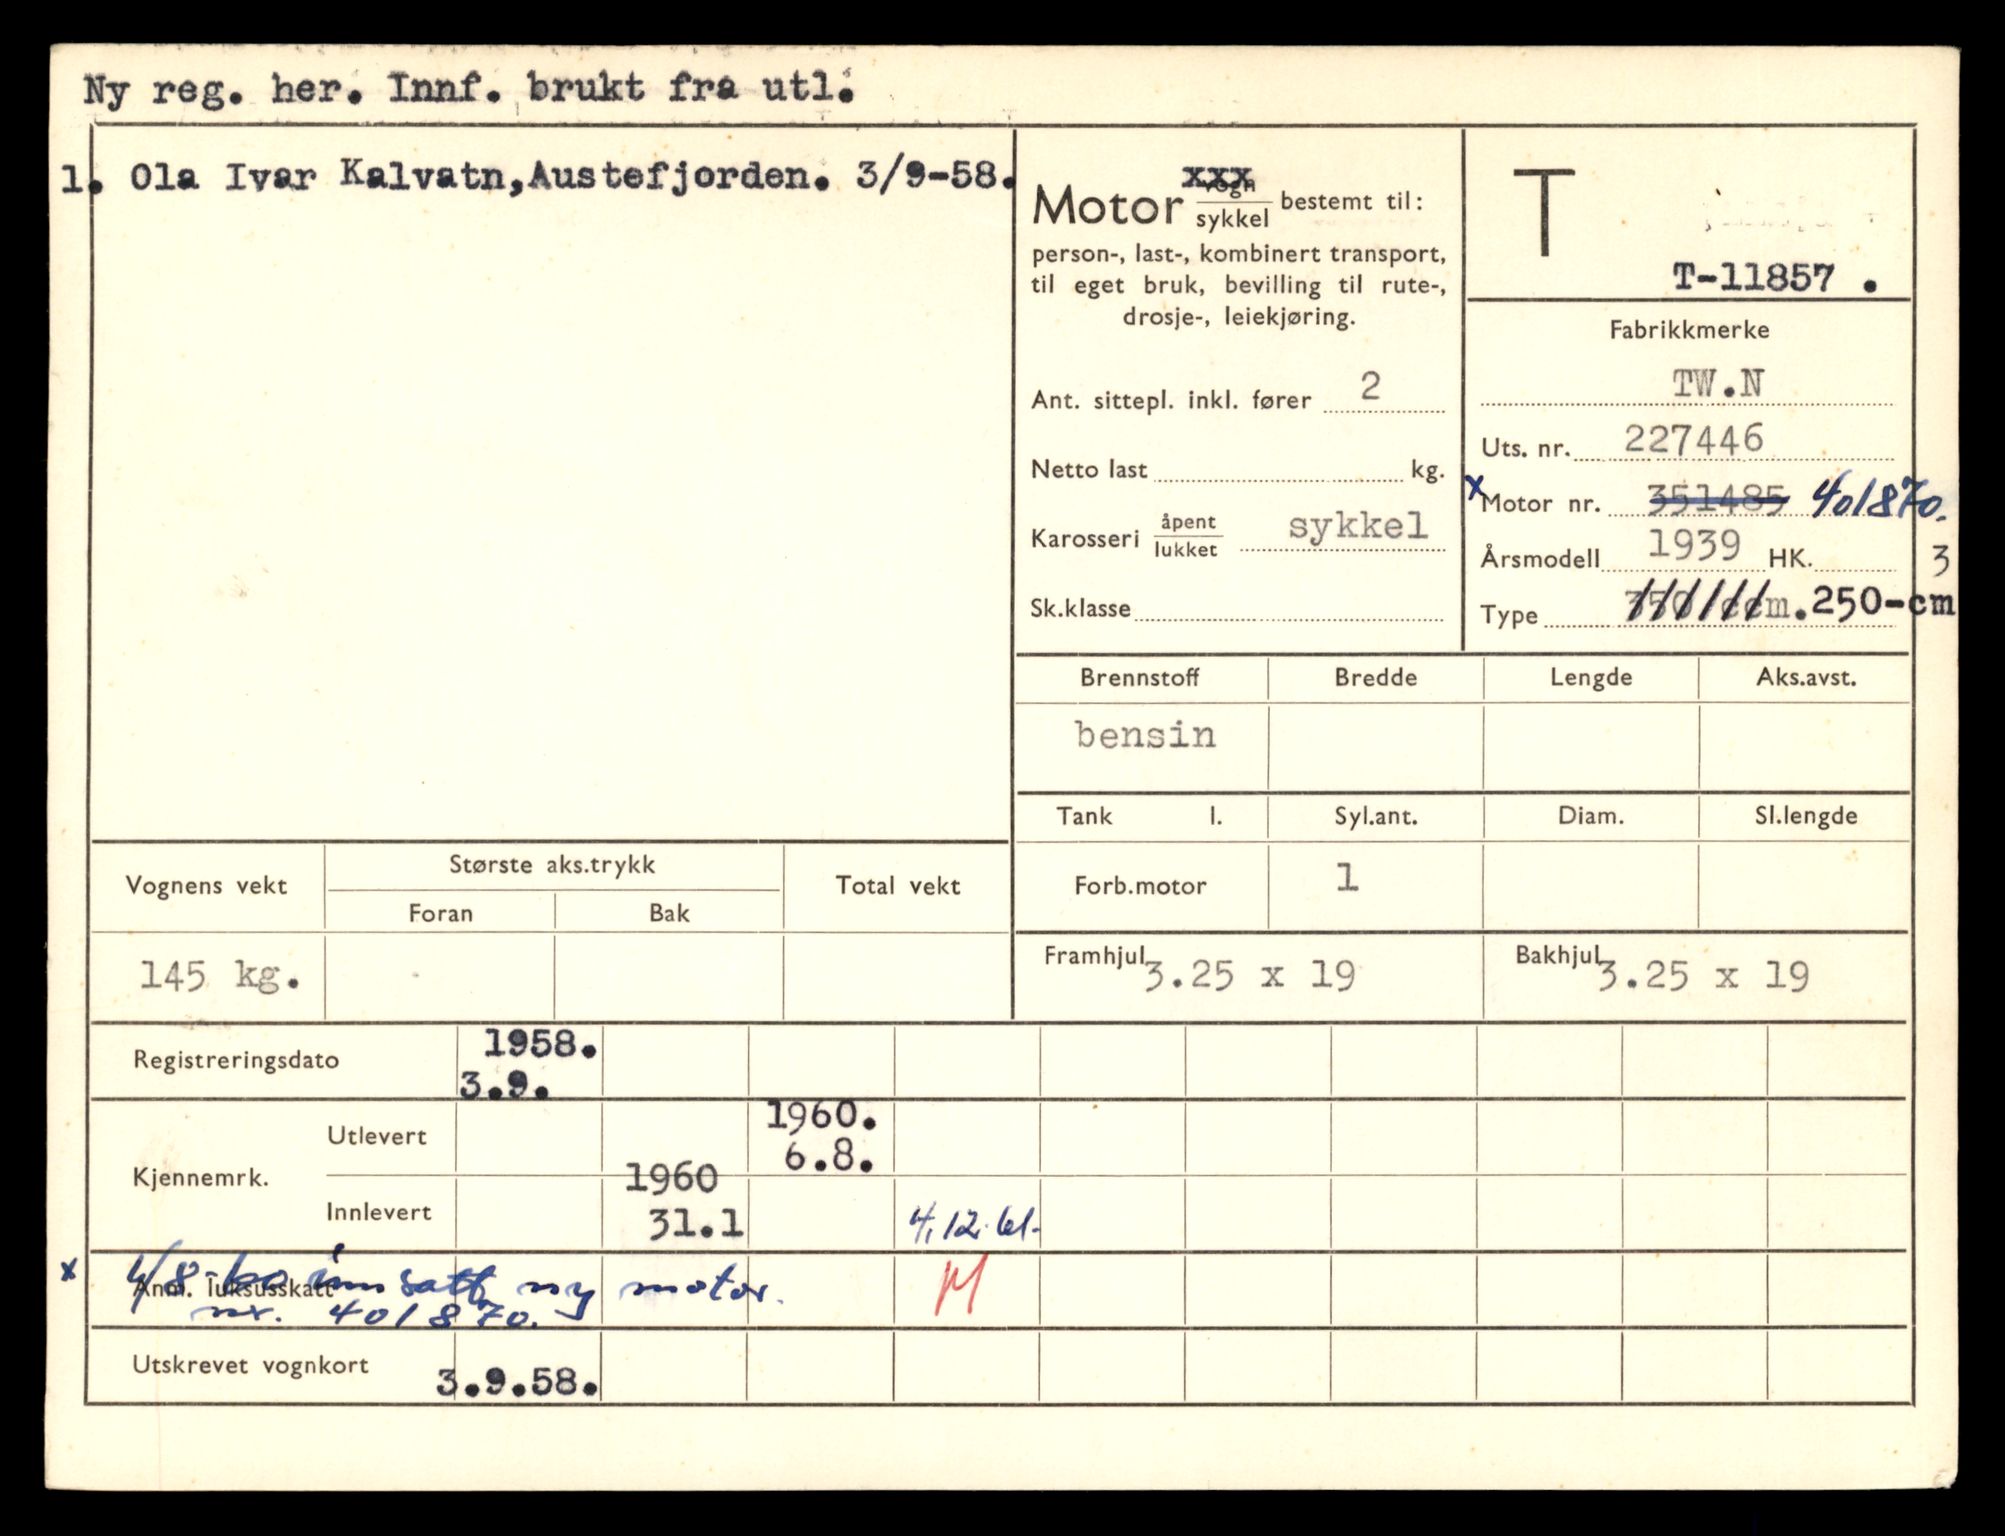 Ny reg. her. Innf. brukt fra utl.
1. Ola Ivar Kalvatn, Austefjorden. 3/9-58.
Motor vogn xxx
sykkel bestemt til:
person-, last-, kombinert transport,
til eget bruk, bevilling til rute-,
drosje-, leiekjøring.
Ant. sittepl. inkl. fører 2
Netto last kg.
Karosseri åpent
lukket sykkel
Sk.klasse
T
T-11857 .
Fabrikkmerke
TW.N
Uts. nr. 227446
x Motor nr. 351485 401870.
Årsmodell 1939 HK. 3
Type 350 ccm. 250-cm
Brennstoff Bredde Lengde Aks.avst.
bensin
Tank l. Syl.ant. Diam. Sl.lengde
Forb.motor 1
Framhjul 3.25 x 19 Bakhjul 3.25 x 19
Vognens vekt Største aks.trykk Total vekt
Foran Bak
145 kg.
Registreringsdato 1958.
3.9.
Kjennemrk. Utlevert 1960.
6.8.
Innlevert 1960
31.1 4.12.61.
Anm. luksusskatt
x 4/8-60 innsatt ny motor.
nr. 401870.
Utskrevet vognkort 3.9.58.